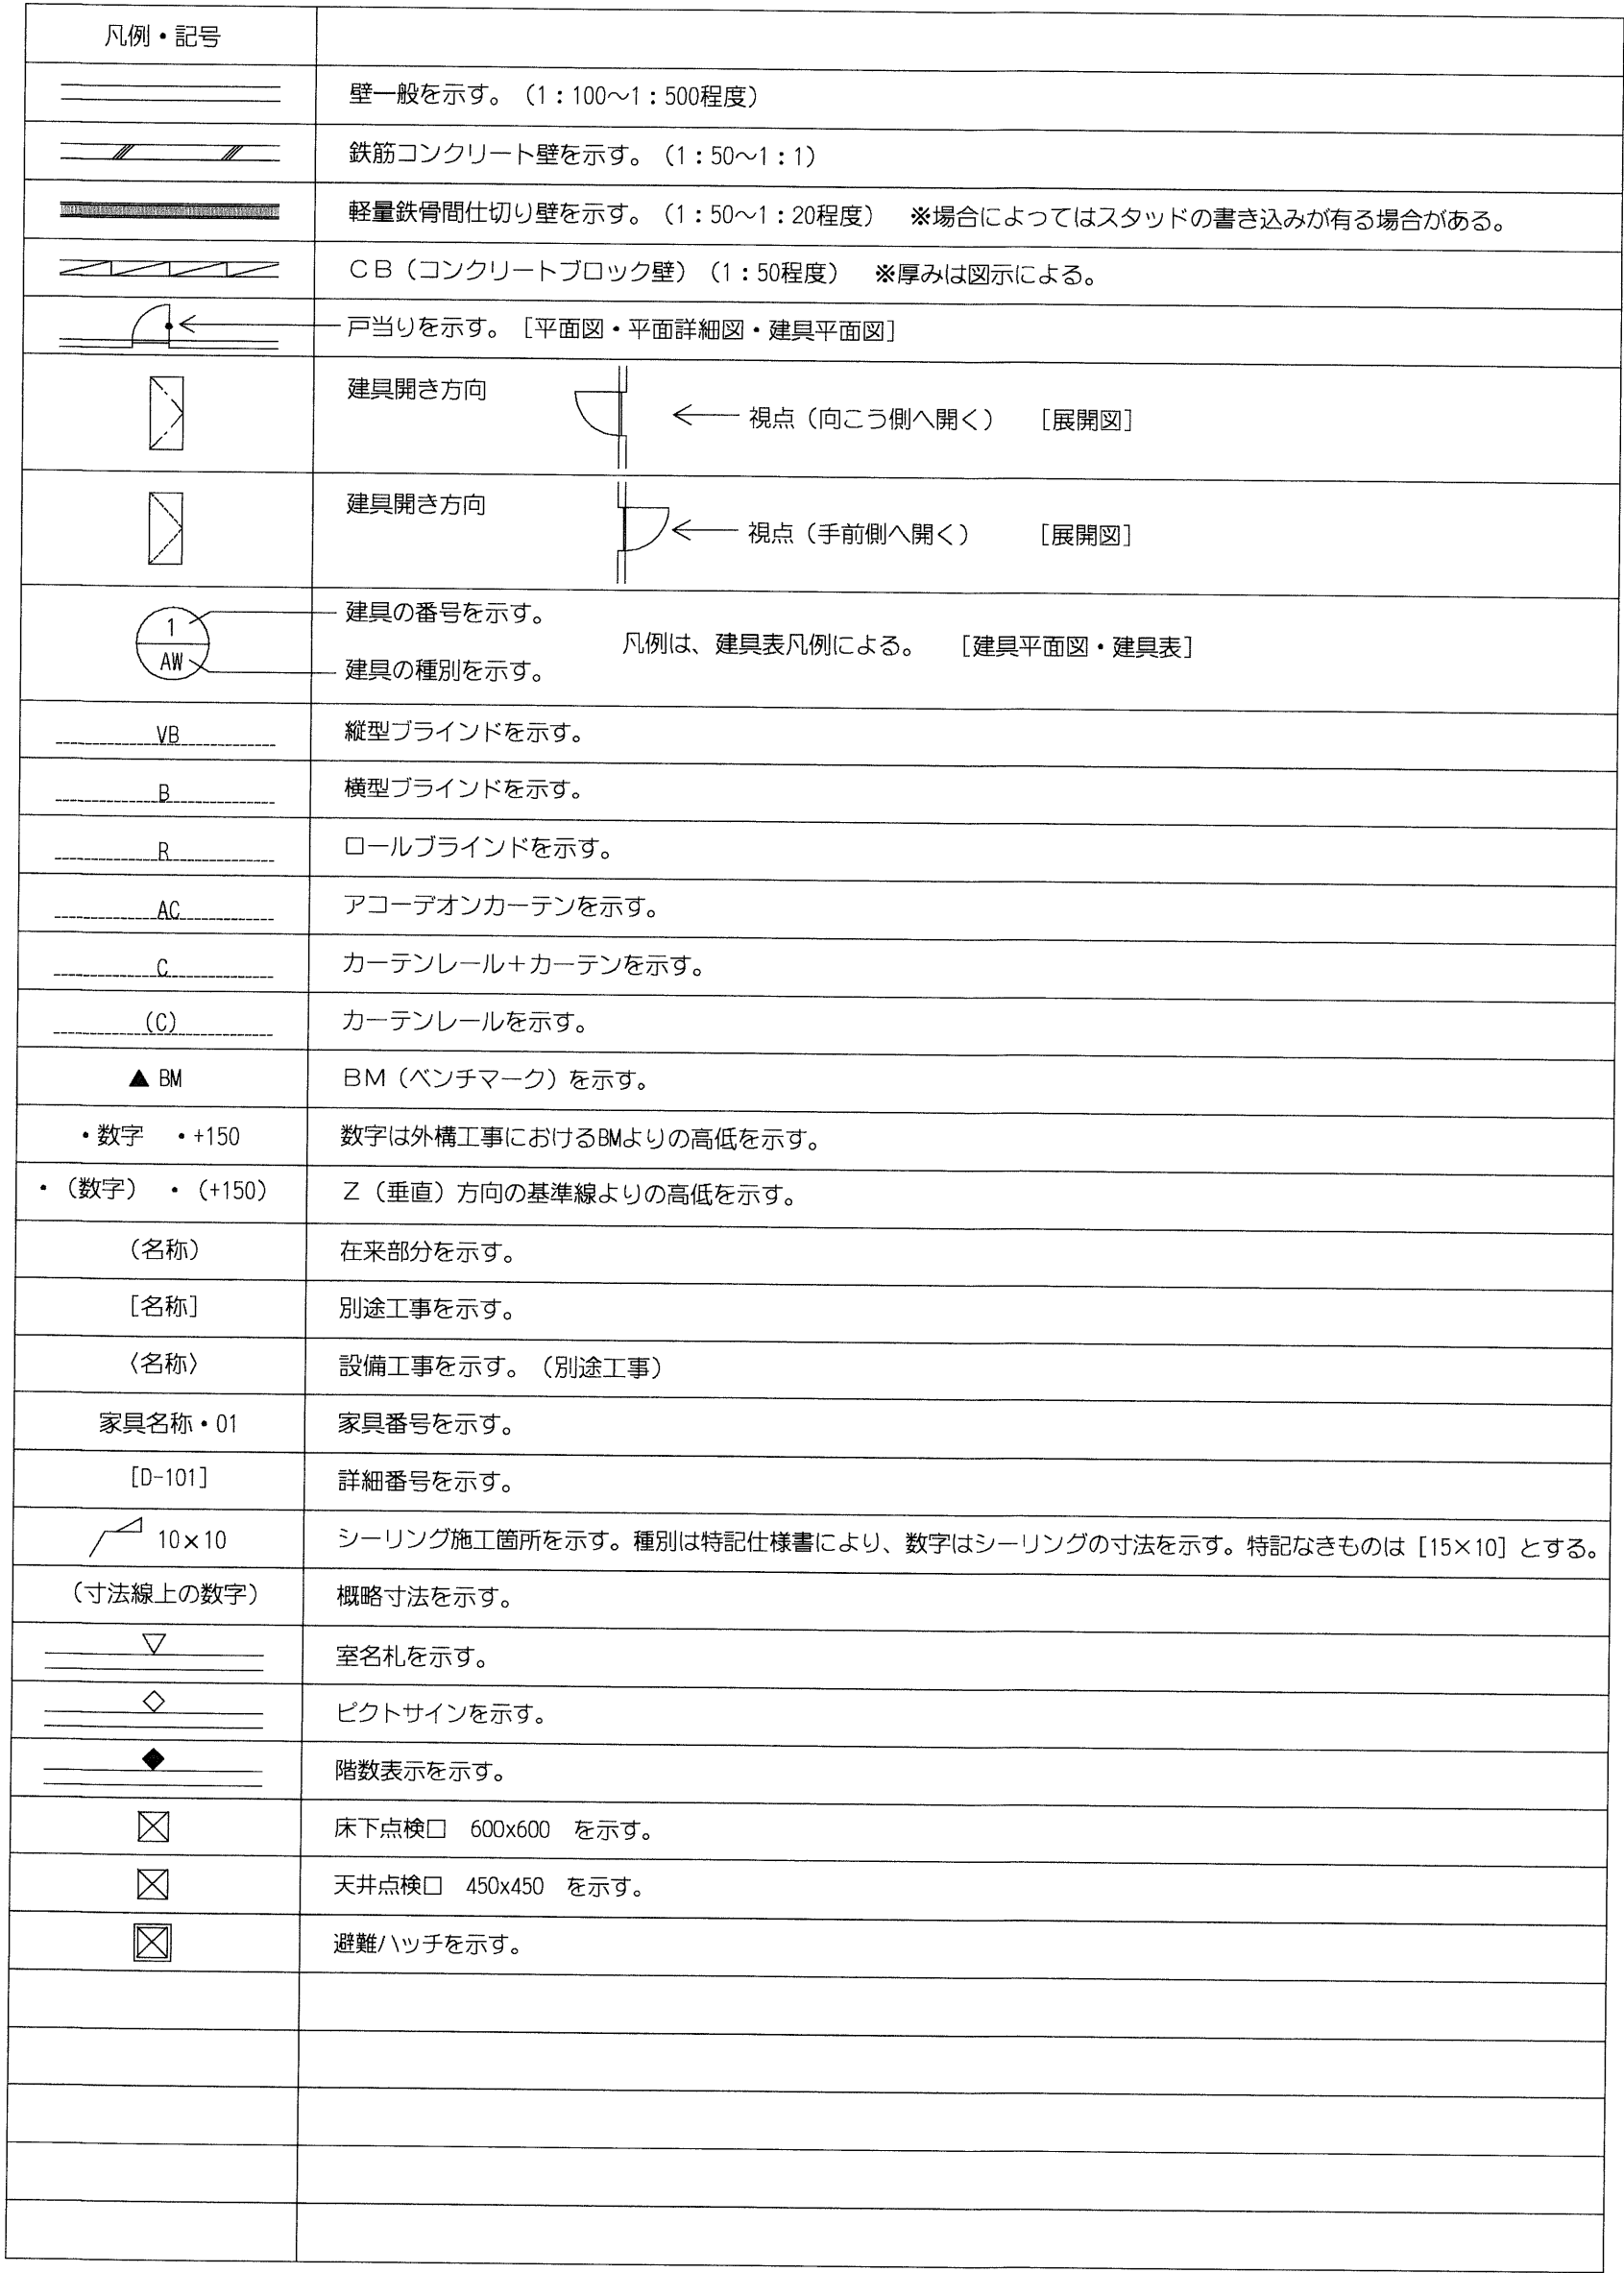 凡例・記号
壁一般を示す。（1：100～1：500程度）
鉄筋コンクリート壁を示す。（1：50～1：1）
軽量鉄骨間仕切り壁を示す。（1：50～1：20程度）　※場合によってはスタッドの書き込みが有る場合がある。
ＣＢ（コンクリートブロック壁）（1：50程度）　※厚みは図示による。
戸当りを示す。［平面図・平面詳細図・建具平面図］
建具開き方向
視点（向こう側へ開く）　［展開図］
建具開き方向
視点（手前側へ開く）　［展開図］
1
建具の番号を示す。
凡例は、建具表凡例による。　［建具平面図・建具表］
AW
建具の種別を示す。
VB　縦型ブラインドを示す。
B　横型ブラインドを示す。
R　ロールブラインドを示す。
AC　アコーデオンカーテンを示す。
C　カーテンレール＋カーテンを示す。
(C)　カーテンレールを示す。
▲ BM　ＢＭ（ベンチマーク）を示す。
・数字　・+150　数字は外構工事におけるBMよりの高低を示す。
・（数字）　・（+150）　Ｚ（垂直）方向の基準線よりの高低を示す。
（名称）　在来部分を示す。
［名称］　別途工事を示す。
〈名称〉　設備工事を示す。（別途工事）
家具名称・01　家具番号を示す。
[D-101]　詳細番号を示す。
10×10　シーリング施工箇所を示す。種別は特記仕様書により、数字はシーリングの寸法を示す。特記なきものは［15×10］とする。
（寸法線上の数字）　概略寸法を示す。
室名札を示す。
ピクトサインを示す。
階数表示を示す。
床下点検口　600x600　を示す。
天井点検口　450x450　を示す。
避難ハッチを示す。